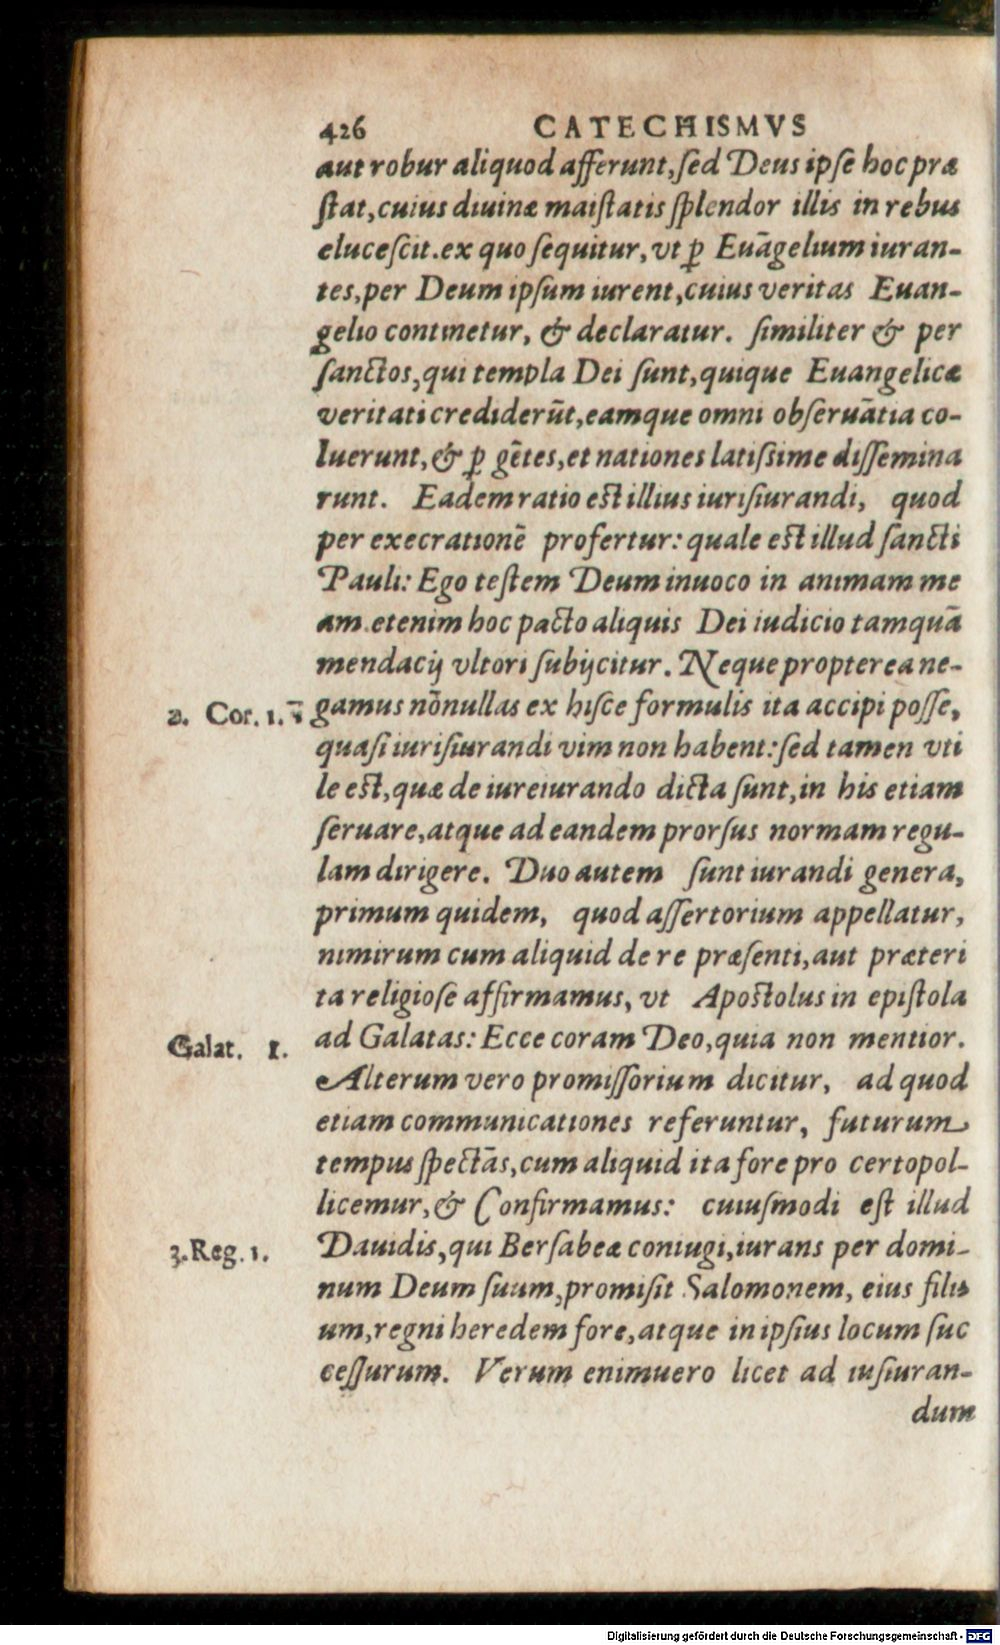 426 CATECHISMVS
aut robur aliquod afferunt, ſed Deus ipſe hoc præ
ſtat, cuius diuinæ maiſtatis ſplendor illis in rebus
eluceſcit. ex quo ſequitur, vt ꝑ Euãgelium iuran-
tes, per Deum ipſum iurent, cuius veritas Euan-
gelio continetur, & declaratur. ſimiliter & per
ſanctos, qui templa Dei ſunt, quique Euangelicæ
veritati crediderũt, eamque omni obſeruãtia co-
luerunt, & ꝑ gẽtes, et nationes latiſsime diſſemina
runt. Eadem ratio eſt illius iuriſiurandi, quod
per execrationẽ profertur: quale eſt illud ſancti
Pauli: Ego teſtem Deum inuoco in animam me
am. etenim hoc pacto aliquis Dei iudicio tamquã
mendacij vltori ſubijcitur. Neque propterea ne-
2. Cor. 1.
gamus nõnullas ex hiſce formulis ita accipi poſſe,
quaſi iuriſiurandi vim non habent: ſed tamen vti
le eſt, quæ de iureiurando dicta ſunt, in his etiam
ſeruare, atque ad eandem prorſus normam regu-
lam dirigere. Duo autem ſunt iurandi genera,
primum quidem, quod aſſertorium appellatur,
nimirum cum aliquid de re præſenti, aut præteri
ta religioſe affirmamus, vt Apoſtolus in epiſtola
Galat. 1.
ad Galatas: Ecce coram Deo, quia non mentior.
Alterum vero promiſſorium dicitur, ad quod
etiam communicationes referuntur, futurum
tempus ſpectãs, cum aliquid ita fore pro certo pol-
licemur, & Confirmamus: cuiuſmodi eſt illud
3. Reg. 1.
Dauidis, qui Berſabeæ coniugi, iurans per domi-
num Deum ſuum, promiſit Salomonem, eius fili
um, regni heredem fore, atque in ipſius locum ſuc
ceſſurum. Verum enimuero licet ad iuſiuran-
dum
Digitalisierung gefördert durch die Deutsche Forschungsgemeinschaft - DFG